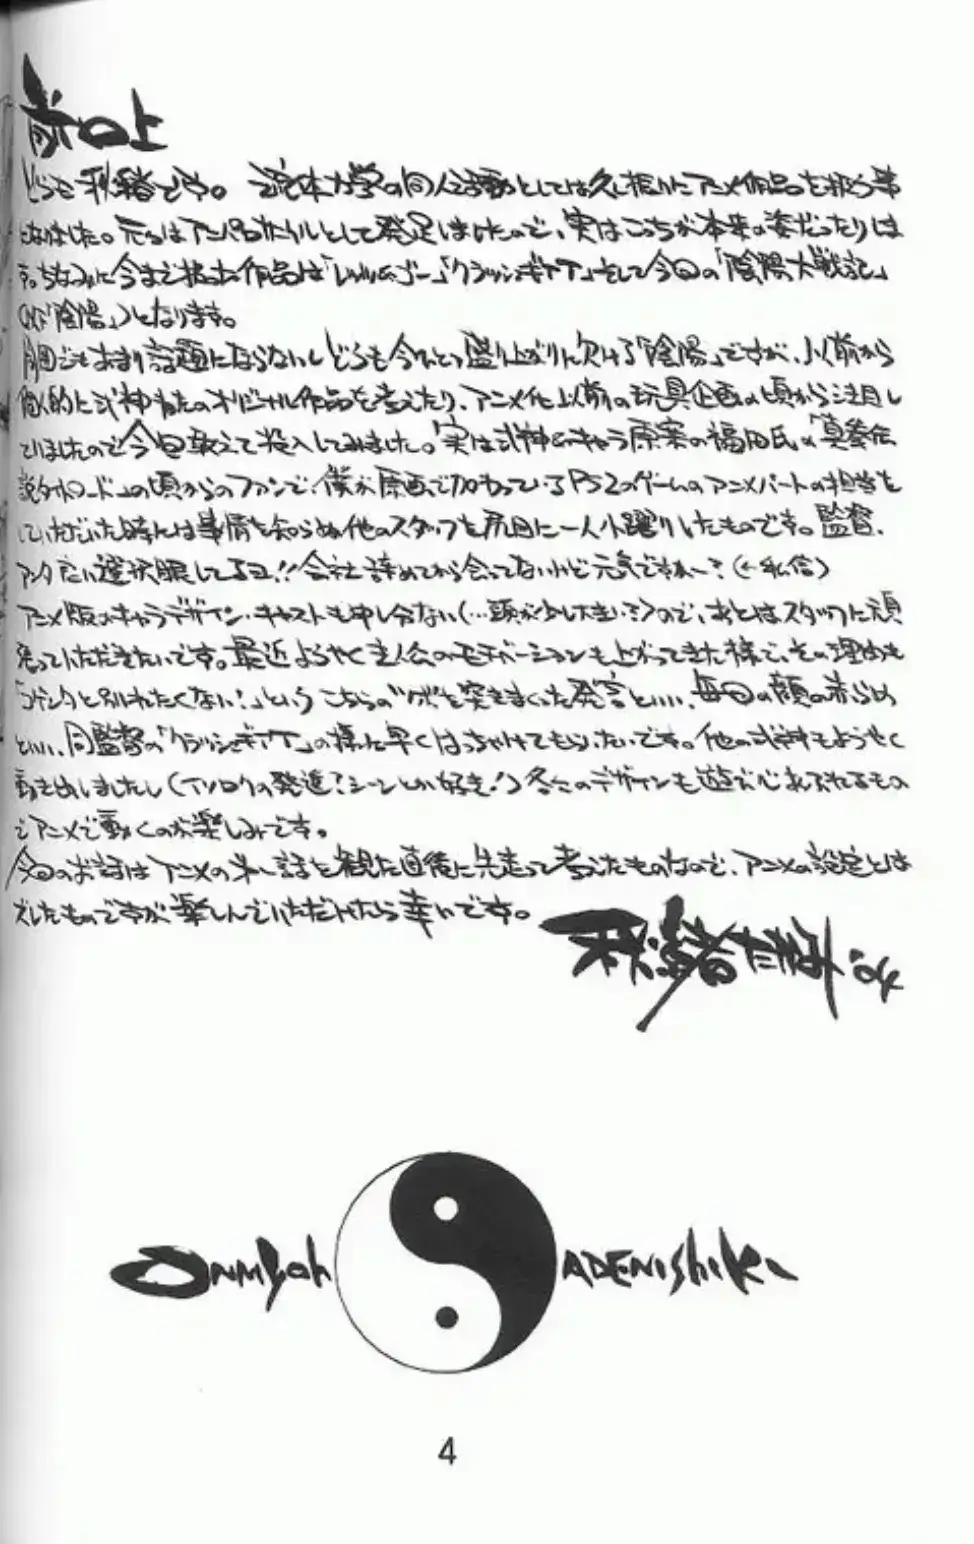 前口上
どうも秋緒です。流体力学の同人活動としては久し振りにアニメ作品を扱う事
になりました。元々はアニパロサークルとして発足しましたので、実はこっちが本来の姿だったりしま
す。ちなみに今まで扱った作品は「レッツ&ゴー」「クラッシュギアT」そして今回の「陰陽大戦記」
(以下「陰陽」)となります。
周囲でもあまり話題にならないしどうも今ひとつ盛り上がりに欠ける「陰陽」ですが、以前から
個人的に式神ネタのオリジナル作品を考えたり、アニメ化以前の玩具企画の頃から注目し
ていましたので今回敢えて投入してみました。実は式神のキャラ原案の福田氏の
の頃からのファンで、僕が原画で加わっているPS2のゲームのアニメパートの担当を
していただいた時には事情を知らぬ他のスタッフを尻目に一人小躍りしたものです。監督、
アンタいい選択眼してるヨ!!会社辞めてから会ってないけど元気ですかー?(←私信)
アニメ版のキャラデザイン・キャストも申し分ない(…頭が少し大きい?)ので、あとはスタッフに頑
張っていただきたいです。最近ようやく主人公のモチベーションも上がってきた様で、その理由も
「コゲンタと別れたくない!」というこちらのツボを突きまくった発言といい、毎回の顔の赤らめ
といい、同監督の「クラッシュギアT」の様に早くはっちゃけてもらいたいです。他の式神もようやく
動き出しましたし(イソロクの発進?シーンとか好き!)冬二のデザインも遊び心あふれるもの
でアニメで動くのが楽しみです。
今回のお話はアニメの 話を観た直後に先走って考えたものなので、アニメの設定とは
ズレたものですが楽しんでいただけたら幸いです。
'04
ONMYOh ADENIShiKi
4